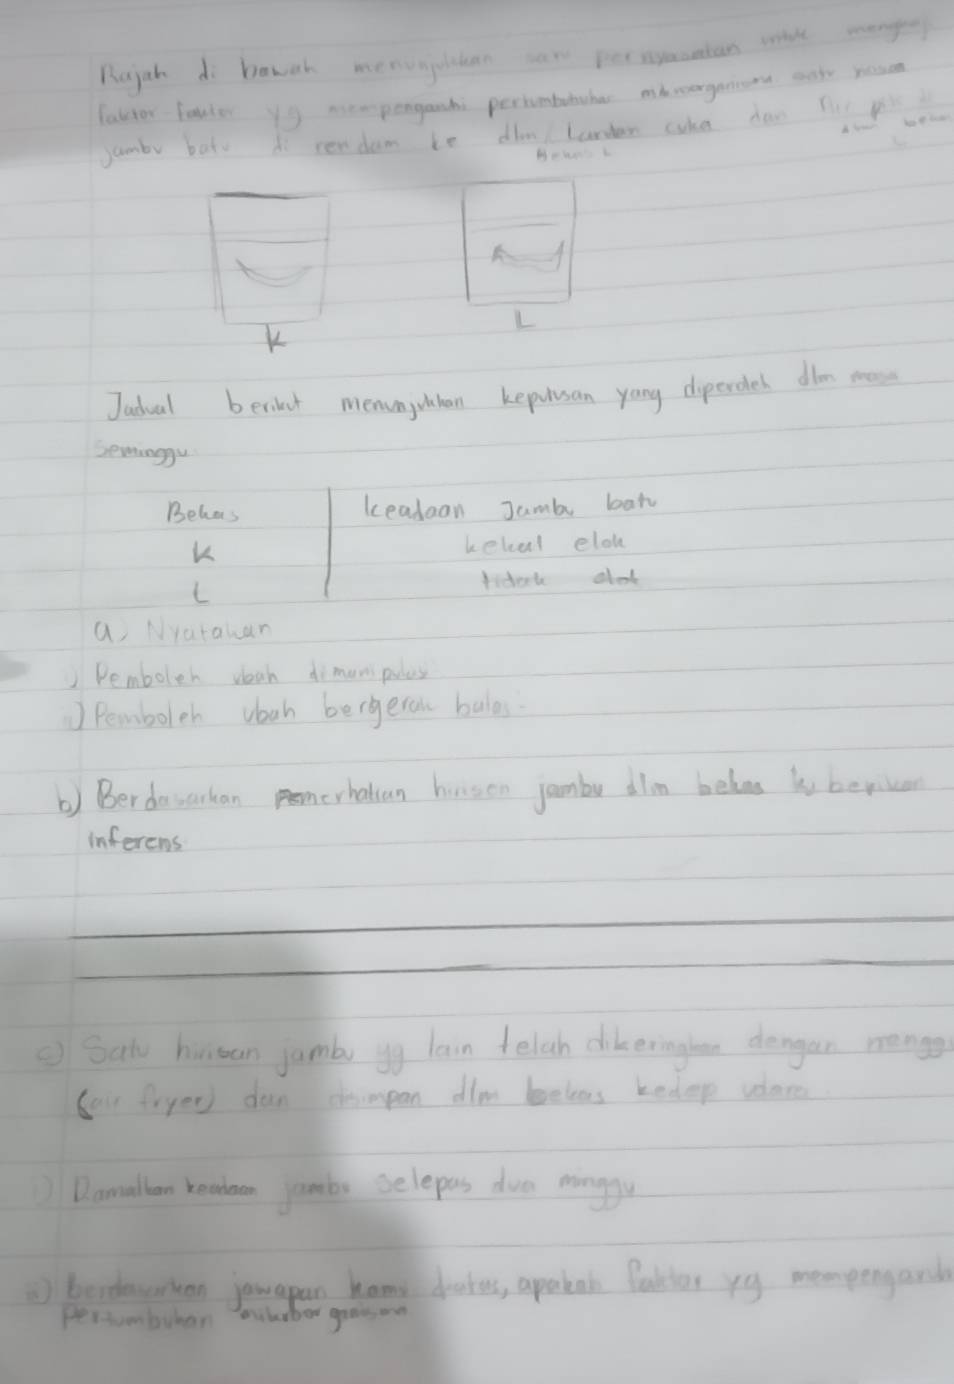 Rajah di bawah menunjukkan satu penyiasatan untuk menguji
faktor-faktor yg mempengaruhi pertumbuhuhan mikroorganisma
jambu batu di rendam ke dlm larutan cuka dan Air
Bekas
K
L
Jadual berikut menunjukkan keputusan yang diperoleh dlm masa
seminggu
Bekas
Keadaan Jambu batu
K
kekal elok
L
tidak elok
a) Nyatakan
i) Pemboleh ubah dimanipulasi
ii) Pemboleh ubah bergerak balas.
b) Berdasarkan pemerhatian hirisan jambu dlm bekas K berikan
inferens
c) Satu hirisan jambu yg lain telah dikeringkan dengan mengg
(air fryer) dan disimpan dlm bekas kedap udara.
i) Ramalkan keadaan jambu selepas dua minggu
ii) Berdasarkan jawapan kamu diatas, apakah faktor yg mempengaruhi
Pertumbuhan